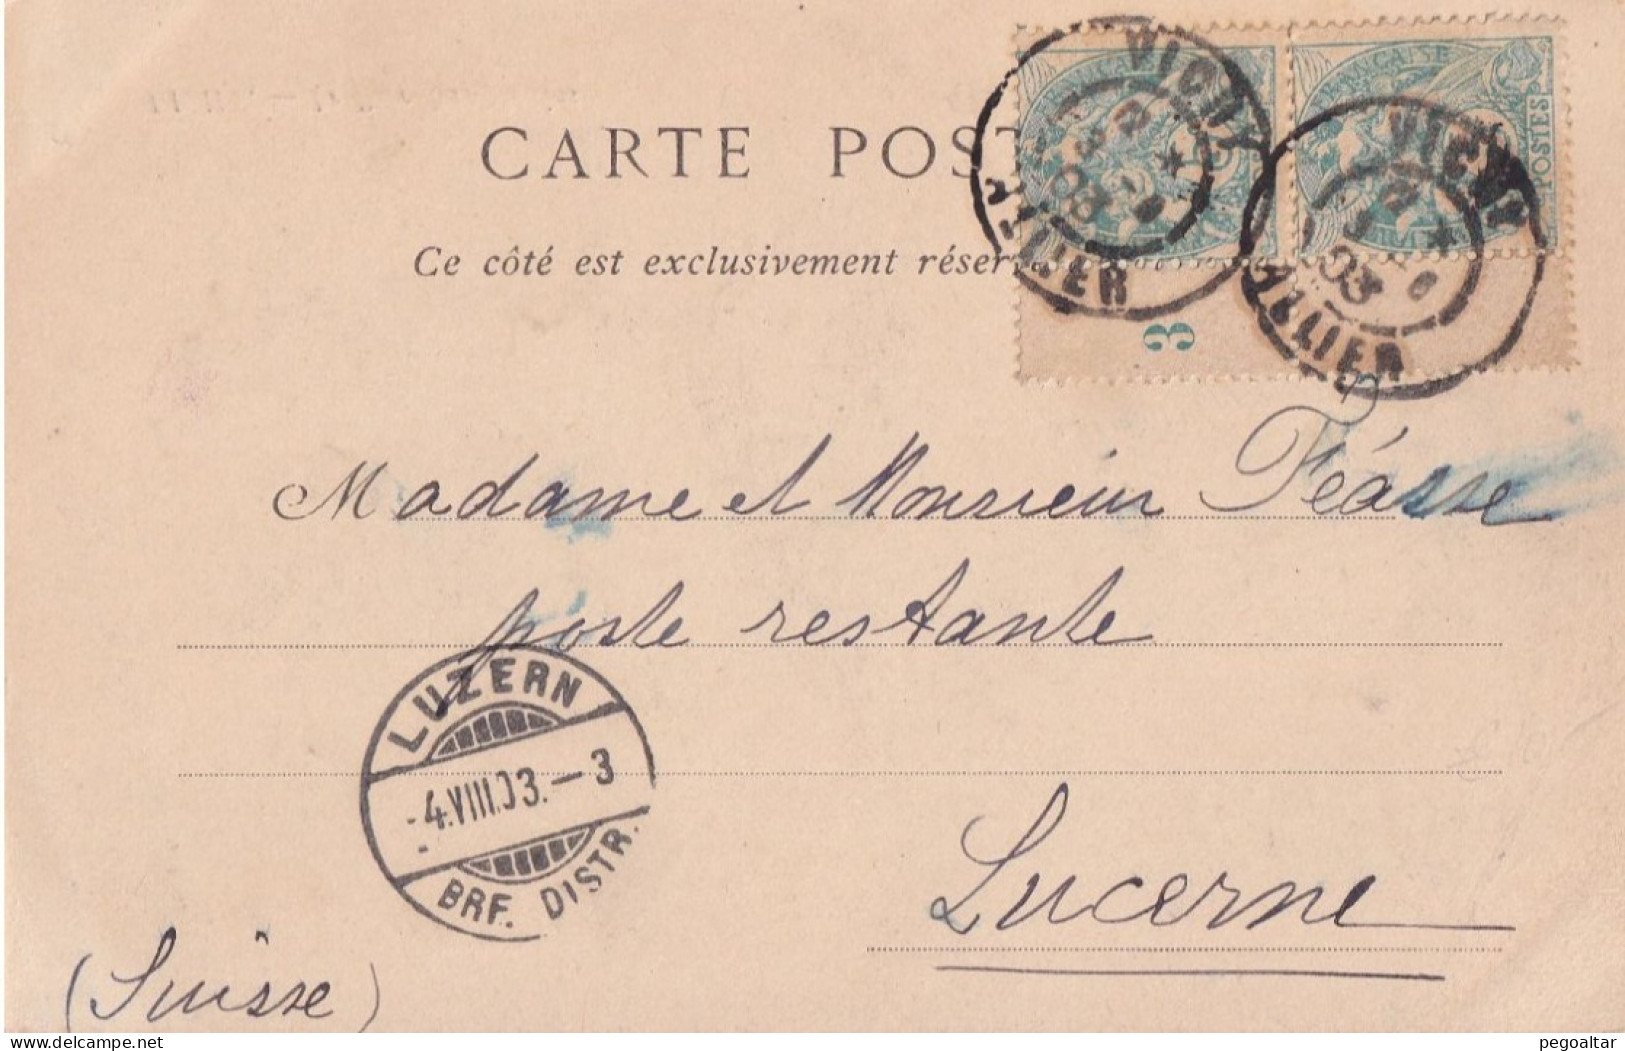 CARTE POST
Ce côté est exclusivement réser
FRANÇAISE
POSTES
VICHY
ALLIER
03
VICHY
ALLIER
03
3
Madame et Monsieur Féasse
poste restante
LUZERN
-4.VIII.03.-3
BRF. DISTR.
Lucerne
(Suisse)
pegoaltar